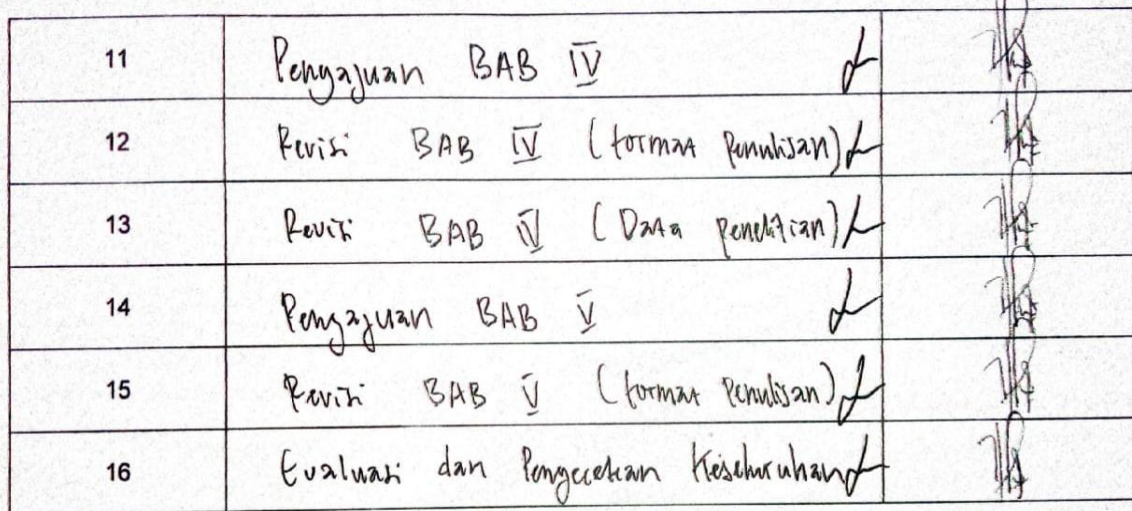 11 Pengajuan BAB IV
12 Revisi BAB IV (format Penulisan)
13 Revisi BAB IV (Data penelitian)
14 Pengajuan BAB V
15 Revisi BAB V (format Penulisan)
16 Evaluasi dan Pengecekan Keseluruhan